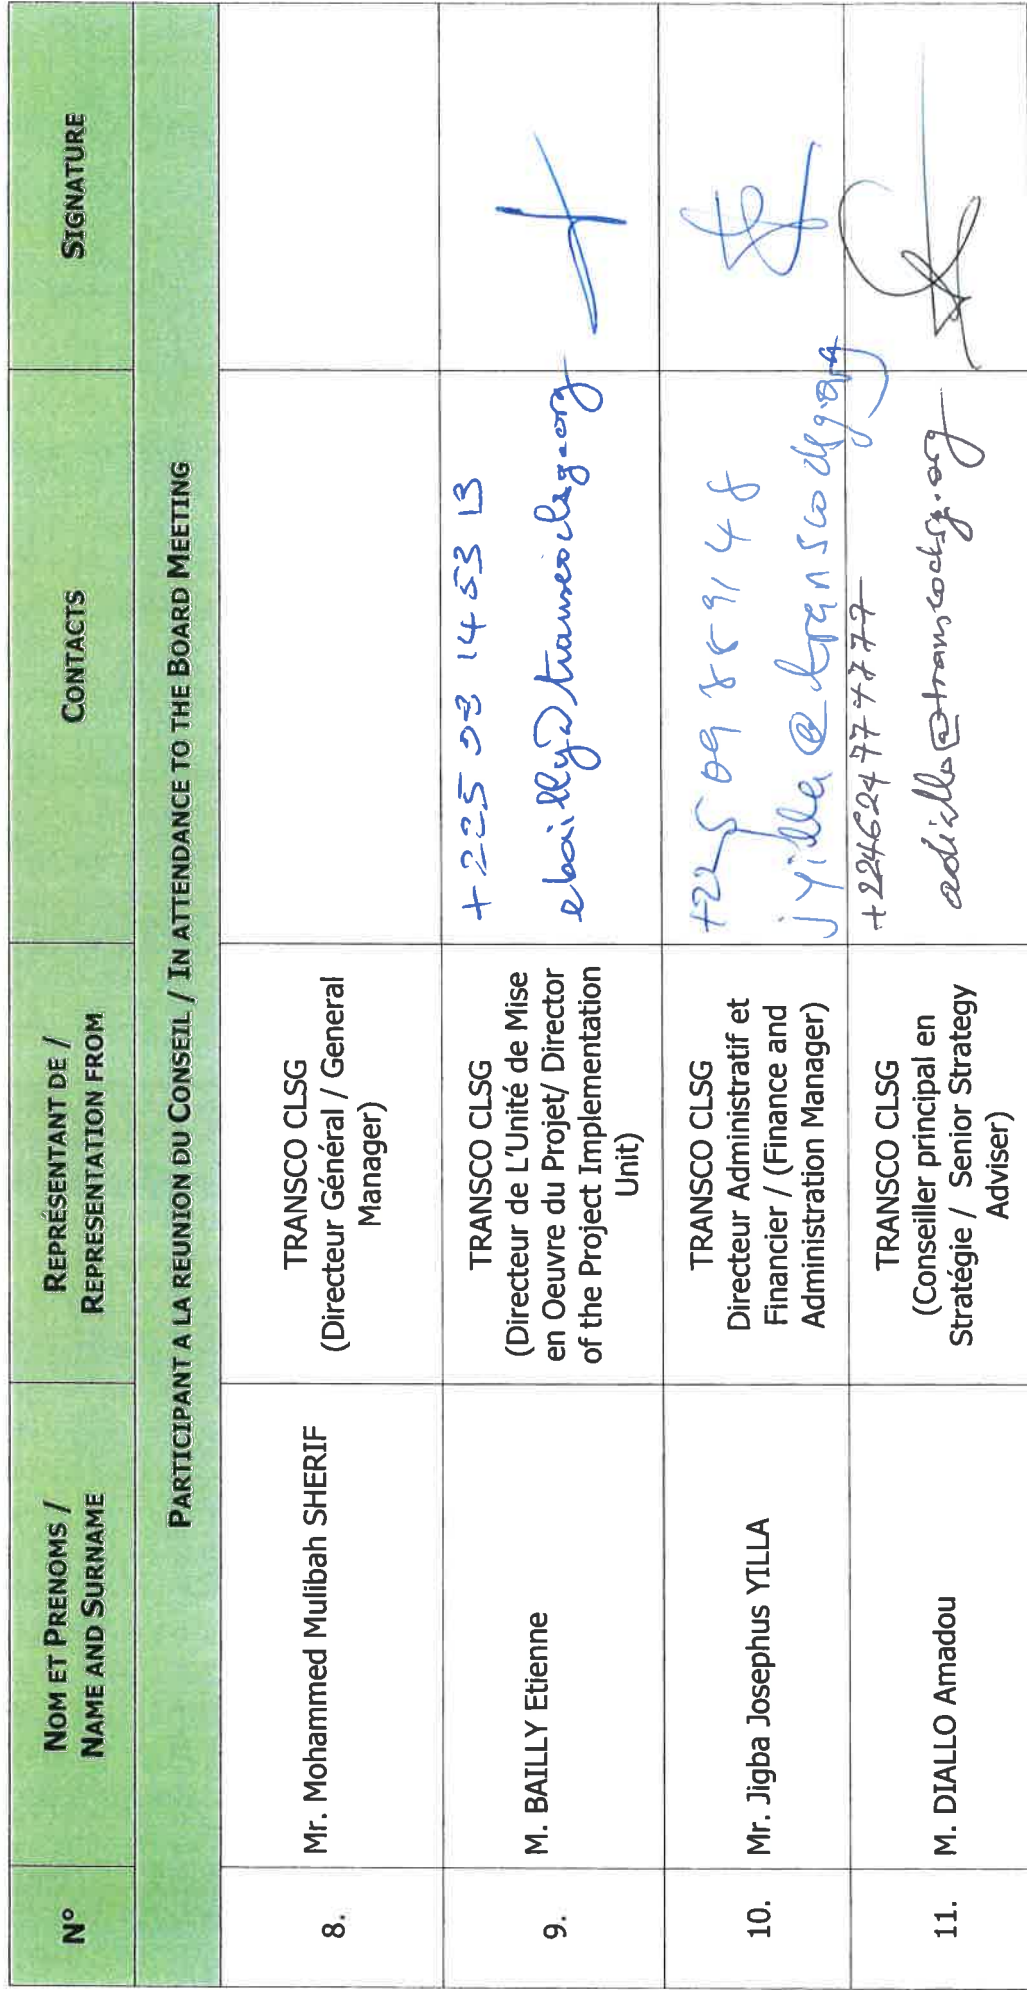 N°
NOM ET PRENOMS /
NAME AND SURNAME
REPRÉSENTANT DE /
REPRESENTATION FROM
CONTACTS
SIGNATURE
PARTICIPANT A LA REUNION DU CONSEIL / IN ATTENDANCE TO THE BOARD MEETING
8.
Mr. Mohammed Mulibah SHERIF
TRANSCO CLSG
(Directeur Général / General
Manager)
9.
M. BAILLY Etienne
TRANSCO CLSG
(Directeur de L'Unité de Mise
en Oeuvre du Projet/ Director
of the Project Implementation
Unit)
+225 03 14 53 13
ebailly@transcoclsg.org
10.
Mr. Jigba Josephus YILLA
TRANSCO CLSG
Directeur Administratif et
Financier / (Finance and
Administration Manager)
+225 09 88 91 48
jyilla@transcoclsg.org
11.
M. DIALLO Amadou
TRANSCO CLSG
(Conseiller principal en
Stratégie / Senior Strategy
Adviser)
+224624777777
adiallo@transcoclsg.org